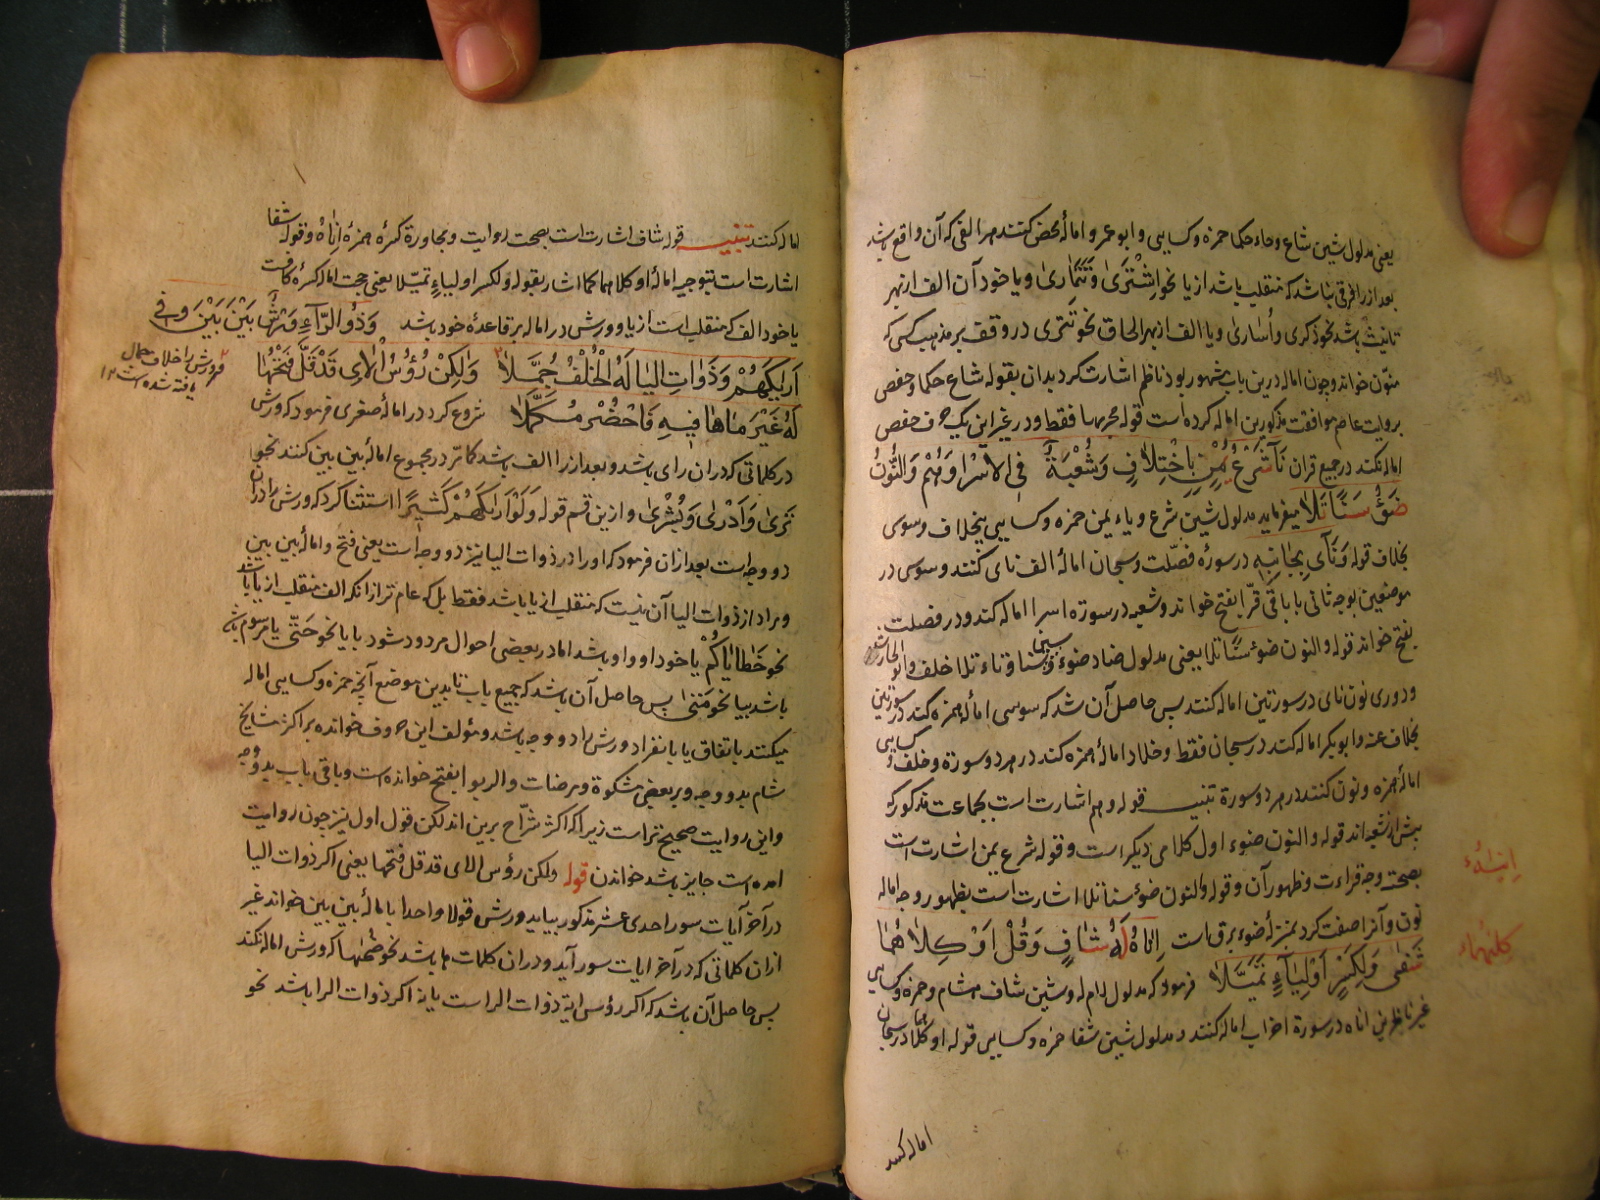 یعنی مدلول شین شاع و حاء حکما حمزه و کسایی و ابو عمرو امالهٔ محض کنند هر الفی که آن واقع باشد
بعد از را فرقی نباشد که منقلب باشد از یا نحو اِشْتَرَیٰ وَ تَتَمَارَیٰ و یا خود آن الف از بهر
تانیث باشد نحو ذکری و أُساریٰ و یا الف از بهر الحاق نحو تَتْری در وقف بر مذهب کسی که
منوّن خواند و چون اماله درین باب مشهور بود ناظم اشارت کرد بدان بقوله شاع حکما و حفص
بروایت عاصم موافقت مذکورین اماله کرده است قوله مجریها فقط و در غیر این یک حرف حفص
اماله نکند در جمیع قران نَآ شَرْعُ یُمْنٍ بِاخْتِلَافٍ وَشُعْبَةٌ فِی الاسْرَا وَهُمْ وَالنُّونُ
ضَوْءُ سَنًا تَلَا میفرماید مدلول شین شرع و یاء یمن حمزه و کسایی بیخلاف و سوسی
بخلاف قوله وَنَآی بِجَانِبِهِ در سورهٔ فصّلت و سبحان امالهٔ الف نای کنند و سوسی در
موضعین بوجه ثانی با باقی قرّا بفتح خواند و شعبه در سورة اسرا اماله کند و در فصلت
بفتح خواند قوله والنون ضوء سنًا تلا یعنی مدلول ضاد ضوء و سین سنا و تاء تلا خلف و ابو الحارث
و دوری نون نای در سورتین اماله کنند پس حاصل آن شد که سوسی امالهٔ همزه کند در سورتین
بخلاف عنه و ابوبکر اماله کند در سبحان فقط و خلاد امالهٔ همزه کند در هر دو سورة و خلف و کسایی
امالهٔ همزه و نون کنند در هر دو سورة تنبیه قوله و هم اشارت است بجماعت مذکور که
پیش از شعبه اند قوله والنون ضوء اول کلامی دیگر است و قوله شرع یمن اشارت است
بصحت وجه قراءت و ظهور آن و قوله والنون ضوء سنا تلا اشارت است بظهور وجه اماله
نون و آنرا صفت کرد بمنزلهٔ ضوء برق است اِنَاهُ لَهُ شَافٍ وَقُلْ اَوْ کِلَاهُمَا
شَفَی وَلِکَسْرٍ اَوْ لِیَاءٍ تَمَیَّلَا فرمود که مدلول لام له و شین شاف هشام و حمزه و کسایی
غیر ناظرین اناه در سورة احزاب اماله کنند و مدلول شین شفا حمزه و کسایی قوله او کلاهما در سبحان
اماله کنند
اِنَیٰهُ
کِلٰهُمَاء
اماله کنند تنبیه قوله شاف اشارت است بصحت روایت و مجاورة کسرهٔ همزهٔ اِنَاهُ و قوله شفا
اشارت است بتوجیه امالهٔ او کلاهما کما اشار بقوله ولکسر او لیاءٍ تمیّلا یعنی جهت اماله کسرهٔ کافست
یا خود الف که منقلب است از یا و ورش در اماله بر قاعدهٔ خود باشد وَذُو الرَّآءِ وَرْشٌ بَیْنَ بَیْنَ وَ فِی
اَرَیٰکَهُمْ وَذَوَاتِ الیَا لَهُ الْخُلْفُ جُمِّلَا وَلَکِنْ رُؤُسُ الْاٰیِ قَدْ قَلَّ فَتْحُهَا
لَهُ غَیْرَ مَا هَا فِیهِ فَاحْضُرْ مُکَمَّلَا شروع کرد در امالهٔ صغری فرمود که ورش
در کلماتی که در ان رای باشد و بعد از را الف باشد کما مرّ در مجموع امالهٔ بین بین کنند نحو
تَرَیٰ وَ اَدْرٰی وَ بُشْریٰ و ازین قسم قوله وَلَوْ اَرٰیکَهُمْ کَثِیرًا استثنا کرد که ورش را در ان
دو وجه است بعد از ان فرمود که او را در ذوات الیا نیز دو وجه است یعنی فتح و امالهٔ بین بین
و مراد از ذوات الیا آن نیست که منقلب از یا باشد فقط بل که عام تر از انکه الف منقلب از یا باشد
نحو خَطَایَاکُمْ یا خود از واو باشد اما در بعضی احوال مردود شود با یا نحو حَتّٰی یا مرسوم باشد
باشد بیا نحو مَتٰی پس حاصل آن باشد که جمیع باب تا بدین موضع آنچه حمزه و کسایی اماله
میکنند باتفاق یا بانفراد ورش را دو وجه باشد و مؤلف این حروف خوانده بر اکثر مشایخ
شام بدو وجه و بر بعضی مشکوة و مرضات و الربوا بفتح خوانده است و باقی باب بدو وجه
و این روایت صحیح تر است زیرا که اکثر شرّاح برین اند لکن قول اول نیز چون روایت
امده است جایز باشد خواندن قوله ولکن رؤس الای قد قل فتحها یعنی اکر ذوات الیا
در آخر آیات سور احدی عشر مذکور بیاید ورش قولا واحدا با امالهٔ بین بین خواند غیر
ازان کلماتی که در آخر ایات سور آید و در ان کلمات ها باشد نحو ضُحٰیهَا که ورش اماله نکند
پس حاصل آن باشد که اکر رؤس ایة ذوات الراست یا نه اکر ذوات الرا باشد نحو
و ورش را خلاف جمال
یافته شده است ۱۲